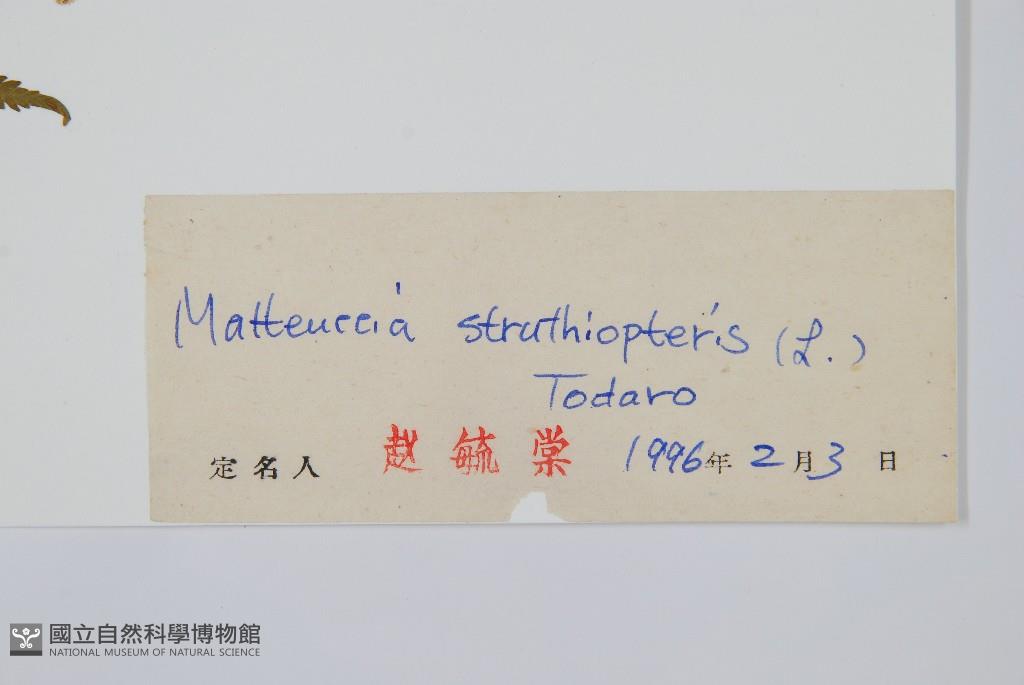 Matteuccia struthiopteris (L.)
Todaro
定名人 赵毓棠 1996年2月3日
國立自然科學博物館
NATIONAL MUSEUM OF NATURAL SCIENCE